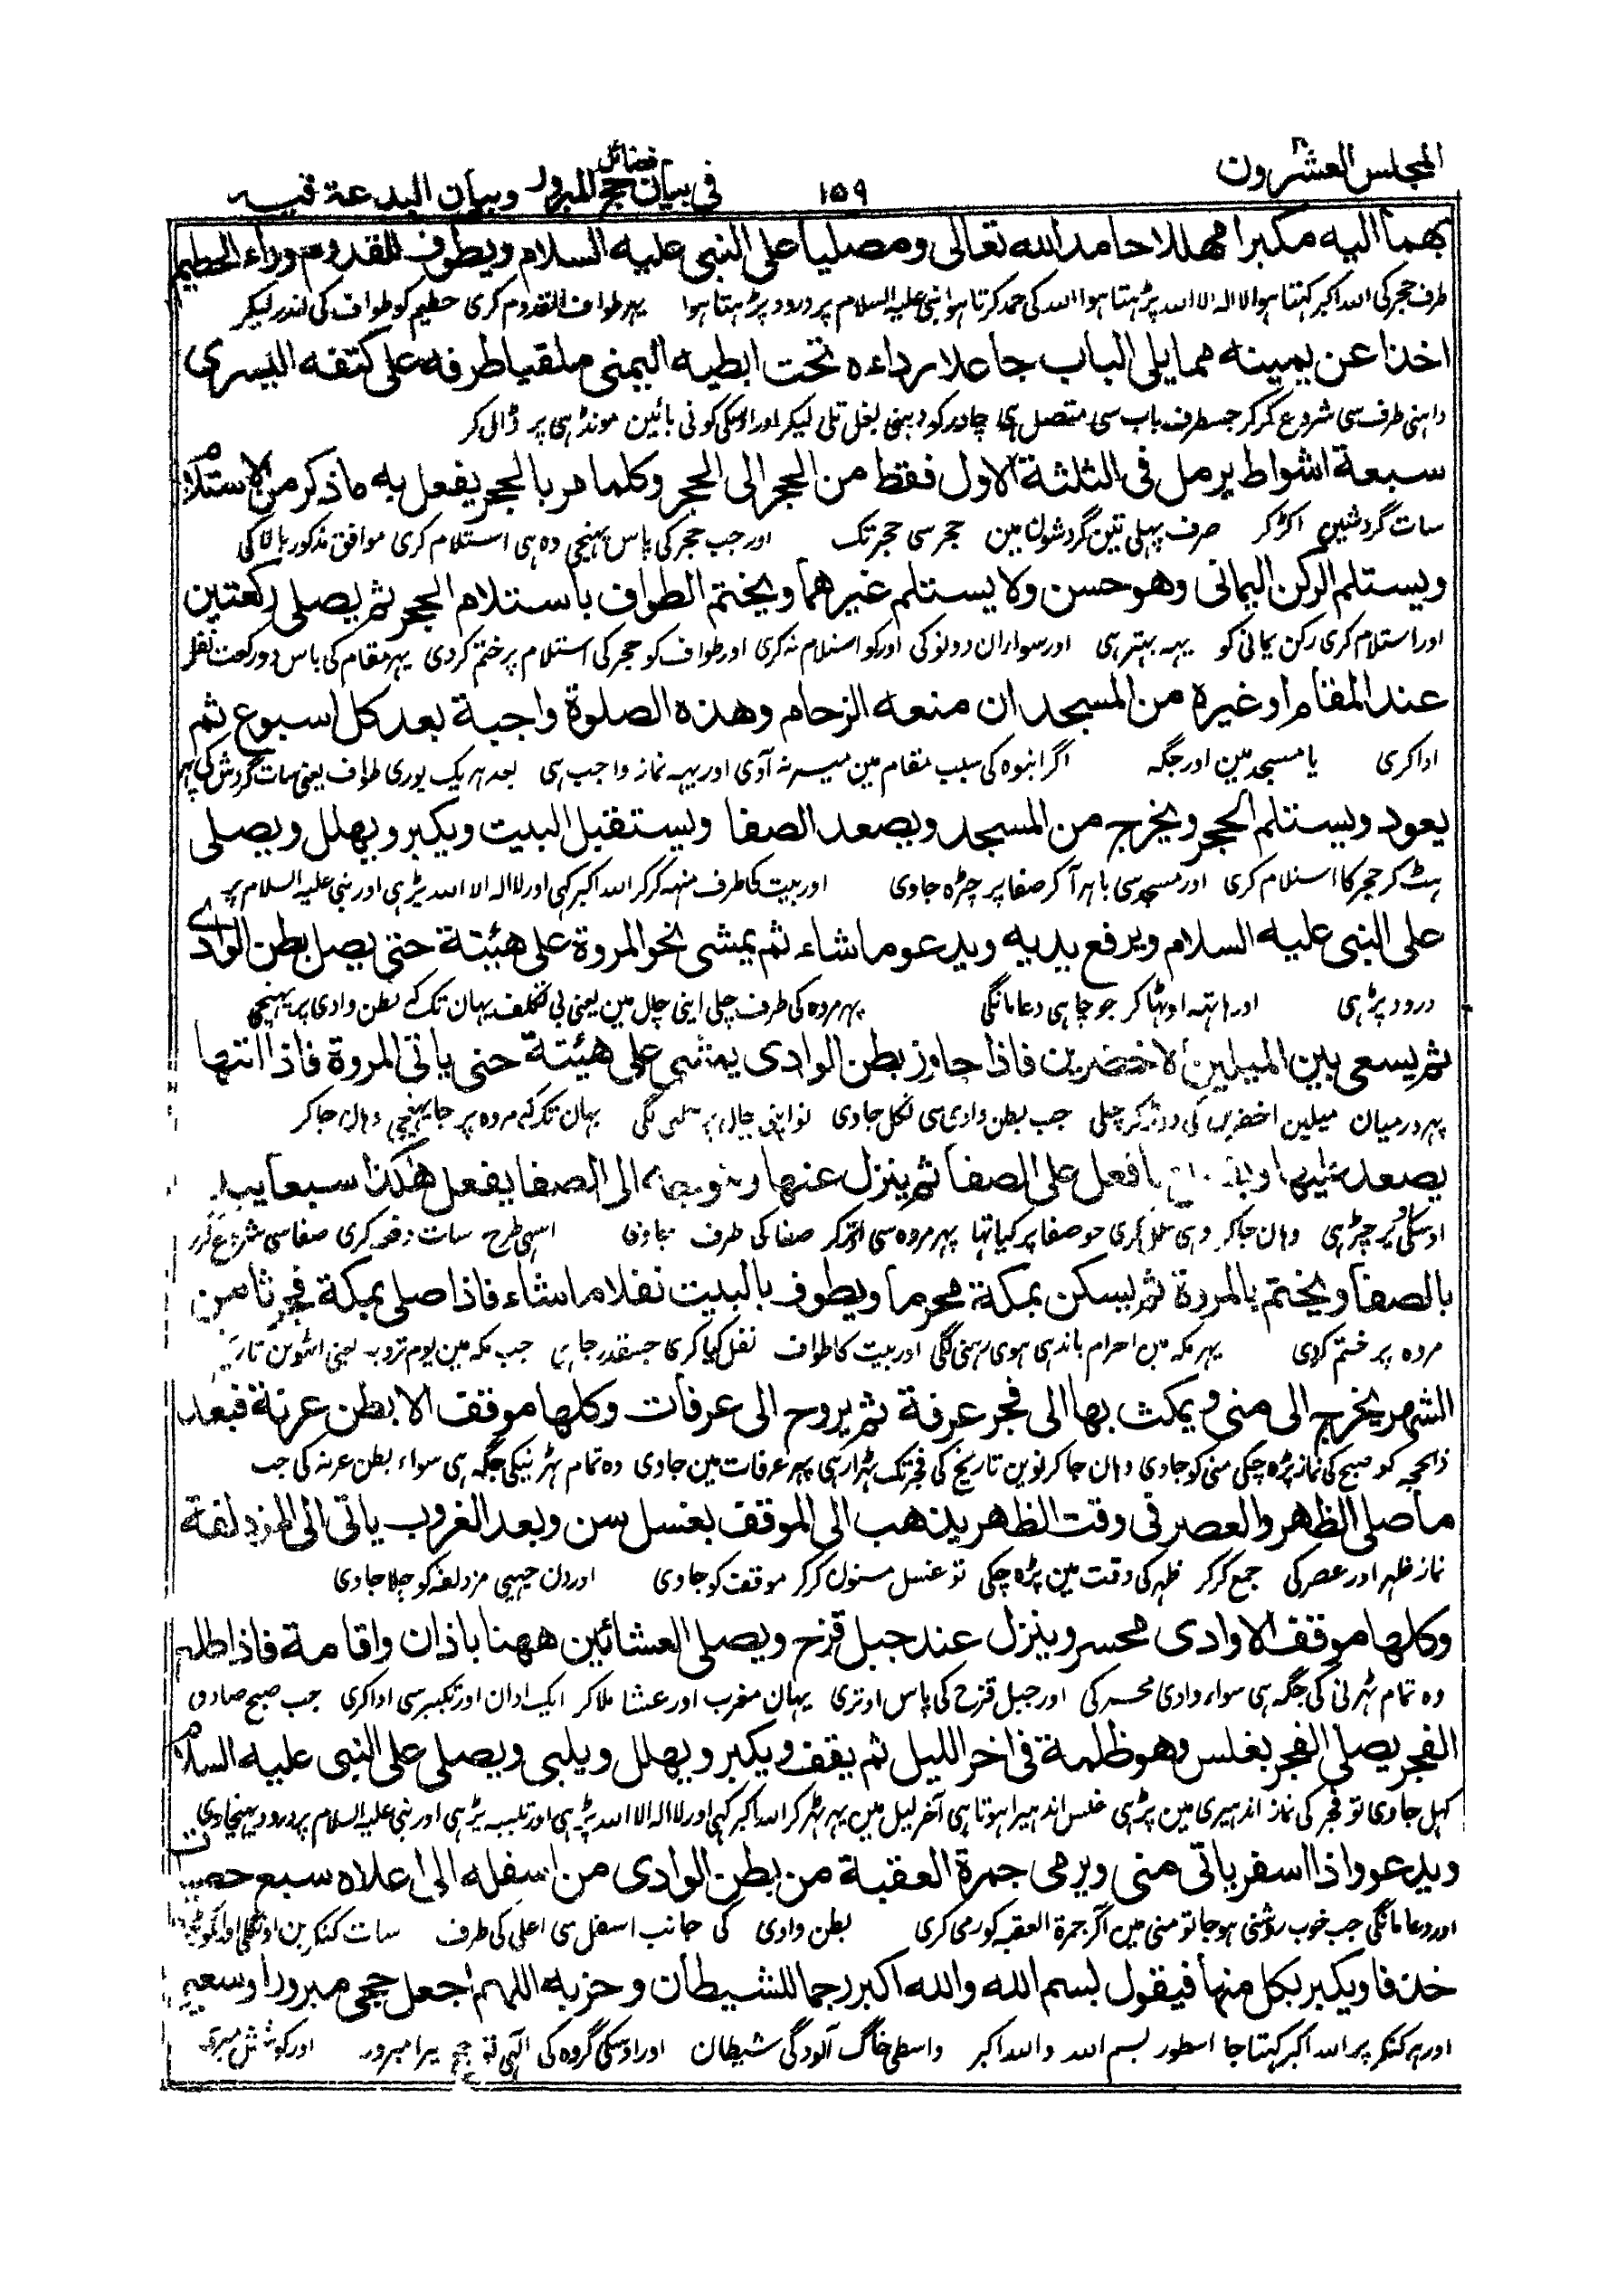 المجلس العشرون ١٥٩ فى بيان فضائل حج المبرور وبيان البدعة فيه
بهما اليه مكبرا مهللا حامدا لله تعالى ومصليا على النبى عليه السلام ويطوف للقدوم وراء الحطيم
طرف حجر کی اللہ اکبر کہتا ہوا لا الہ الا اللہ پڑہتا ہوا اللہ کی حمد کرتا ہوا نبی علیہ السلام پر درود پڑہتا ہوا پہر طواف القدوم کری حطیم کو طواف کی اندر لیکر
اخذا عن يمينه مما يلى الباب جاعلا رداءه تحت ابطيه اليمنى ملقيا طرفه على كتفه اليسرى
داہنی طرف سی شروع کرکر جسطرف باب سی متصل ہی چادر کو دہنی بغل تلی لیکر اور اوسکی کونی بائین مونڈہی پر ڈال کر
سبعة اشواط يرمل فى الثلثة الاول فقط من الحجر الى الحجر وكلما مر بالحجر يفعل به ما ذكر من الاستلام
سات گردشین اکڑ کر صرف پہلی تین گردشون مین حجر سی حجر تک اور جب حجر کی پاس پہنچی وہ ہی استلام کری موافق مذکور بالا کی
ويستلم الركن اليمانى وهو حسن ولا يستلم غيرهما ويختم الطواف باستلام الحجر ثم يصلى ركعتين
اور استلام کری رکن یمانی کو یہہ بہتر ہی اور سوا ان دونو کی اور کو استلام نہ کری اور طواف کو حجر کی استلام پر ختم کردی پہر مقام کی پاس دو رکعت نفل
عند المقام او غيره من المسجد ان منعه الزحام وهذه الصلوة واجبة بعد كل اسبوع ثم
ادا کری یا مسجد مین اور جگہ اگر انبوہ کی سبب مقام مین میسر نہ آوی اور یہہ نماز واجب ہی بعد ہر یک پوری طواف یعنی سات گردش کی پہر
يعود ويستلم الحجر ويخرج من المسجد ويصعد الصفا ويستقبل البيت ويكبر ويهلل ويصلى
ہٹ کر حجر کا استلام کری اور مسجد سی باہر آکر صفا پر چڑہ جاوی اور بیت کا طرف منہہ کرکر اللہ اکبر کہی اور لا الہ الا اللہ پڑہی اور نبی علیہ السلام پر
على النبى عليه السلام ويرفع يديه ويدعو ما شاء ثم يمشى نحو المروة على هيئته حتى يصل بطن الوادى
درود پڑہی اور ہاتہہ اوٹہا کر جو چاہی دعا مانگی پہر مروہ کی طرف چلی اپنی چال مین یعنی بی تکلف یہان تک کے بطن وادی پر پہنچی
ثم يسعى بين الميلين الاخضرين فاذا جاوز بطن الوادى يمشى على هيئته حتى ياتى المروة فاذا انتها
پہر درمیان میلین اخضرین کی دوڑ کر چلی جب بطن وادی سی نکل جاوی تو اپنی چال پر چلنی لگی یہان تک کہ مروہ پر جا پہنچی وہان جا کر
يصعد عليها فعل على الصفا ثم ينزل عنها الى الصفا يفعل هكذا سبعا
اوسکی پر چڑہی وہان جاکر وہی عمل کری جو صفا پر کیا تہا پہر مروہ سی اوتر کر صفا کی طرف اسی طرح سات دفعہ کری صفا سی شروع کرر
بالصفا ويختم بالمروة ثم يسكن بمكة محرما ويطوف بالبيت نفلا ما شاء فاذا صلى بمكة فجر ثامن
مروہ پر ختم کردی پہر مکہ مین احرام باندہی ہوی رہنی لگی اور بیت کا طواف نفل کیا کری جسقدر چاہی جب مکہ مین یوم ترویہ یعنی اٹہوین
الشهر يخرج الى منى ويمكث بها الى فجر عرفة ثم يروح الى عرفات وكلها موقف الا بطن عرنة فبعد
ذالحجہ کو صبح کی نماز پڑہ چکی منی کو جاوی وہان جا کر نوین تاریخ کی فجر تک ٹہرا رہی پہر عرفات مین جاوی وہ تمام ٹہرنیکی جگہ ہی سواء بطن عرنہ کی جب
ما صلى الظهر والعصر فى وقت الظهر يذهب الى الموقف بغسل سن وبعد الغروب ياتى الى المزدلفة
نماز ظہر اور عصر کی جمع کرکر ظہر کی وقت مین پڑہ چکی تو غسل مسنون کرکر موقف کو جاوی اور دن چہپی مزدلفہ کو چلا جاوی
وكلها موقف الا وادى محسر وينزل عند جبل قزح ويصلى العشائين ههنا باذان واقامة فاذا طلع
وہ تمام ٹہرنی کی جگہ ہی سواء وادی محسر کی اور جبل قزح کی پاس اوتری یہان مغرب اور عشا ملا کر ایک اذان اور تکبیر سی ادا کری جب صبح صادق
الفجر يصلى الفجر بغلس وهو ظلمة فى اخر الليل ثم يقف ويكبر ويهلل ويلبى ويصلى على النبى عليه السلام
کہل جاوی تو فجر کی نماز اندہیری مین پڑہی غلس اندہیرا ہوتا ہی آخر لیل مین پہر ٹہر کر اللہ اکبر کہی اور لا الہ الا اللہ پڑہی اور تلبیہ پڑہی اور نبی علیہ السلام پر درود پہنچاوی
ويدعو واذا اسفر ياتى منى ويرمى جمرة العقبة من بطن الوادى من اسفله الى اعلاه سبع حصيات
اور دعا مانگی جب خوب روشنی ہوجا تو منی مین آکر جمرة العقبہ کو رمی کری بطن وادی کی جانب اسفل سی اعلی کی طرف سات کنکرین
خذفا ويكبر بكل منها فيقول بسم الله والله اكبر رجما للشيطان وحزبه اللهم اجعل حجى مبرورا وسعيى
اور ہر کنکر پر اللہ اکبر کہتا جا اسطور بسم اللہ واللہ اکبر واسطی خاک آلودگی شیطان اور اوسکی گروہ کی الہی تو حج میرا مبرور اور کوشش میری